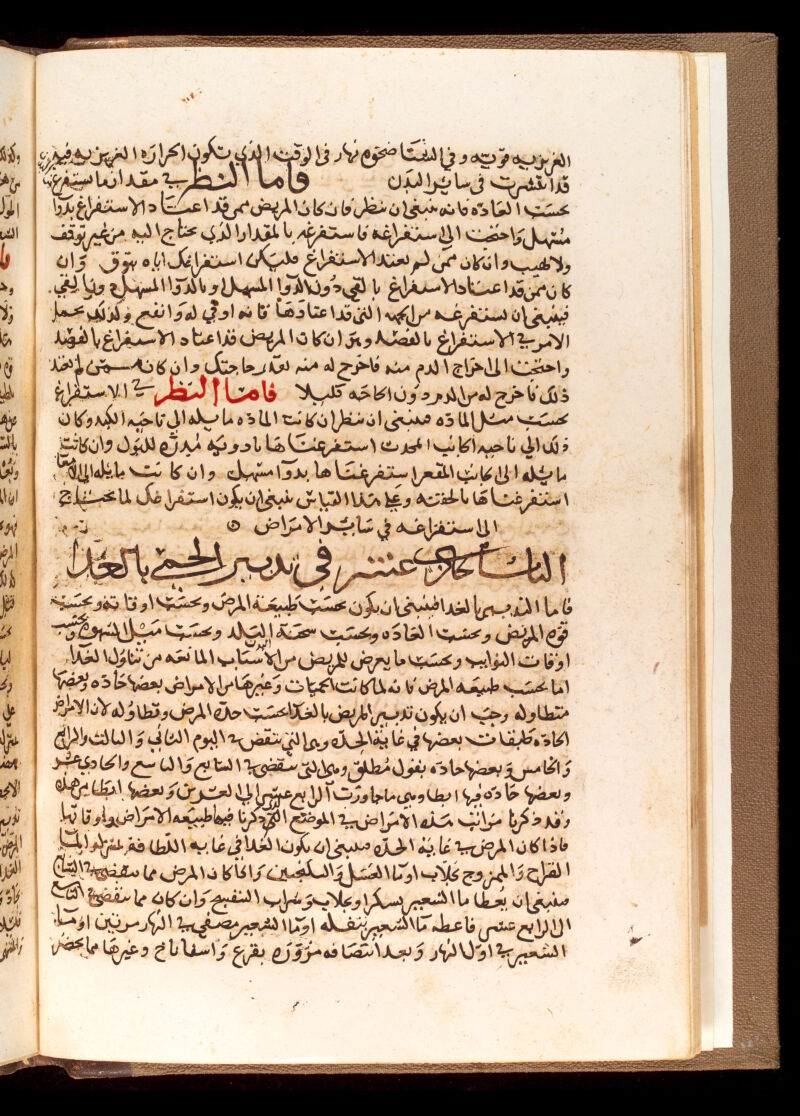 الغريزيه قويه وفي الشتا ضحوه نهار في الوقت الذي تكون الحراره الغريزيه فيه
قد انتشرت في ساير البدن فاما النظر في مقدار ما يستفرغ
بحسب العاده فانه ينبغي ان ينظر فان كان المريض ممن قد اعتاد الاستفراغ بدوا
مسهل واحتجت الى استفراغه فاستفرغه بالمقدار الذي يحتاج اليه من غير توقف
ولا تهيب وان كان ممن لم يعتد الاستفراغ فليكن استفراغك اياه بتوق وان
كان ممن قد اعتاد الاستفراغ بالقي دون الدوا المسهل او بالدوا المسهل دون القي
فينبغي ان تستفرغه من الجهه التي قد اعتادها فانه اوفق له وانفع وكذلك يجعل
الامر في الاستفراغ بالفصد وهو ان كان المريض قد اعتاد الاستفراغ بالفصد
واحتجت الى اخراج الدم منه فاخرج له منه بقدر حاجتك وان كان ممن لم يعتد
ذلك فاخرج له من الدم دون الحاجه قليلا فاما النظر في الاستفراغ
بحسب ميل الماده فينبغي ان ينظر ان كانت الماده مايله الى ناحيه الكبد وكان
ذلك الى ناحيه الجانب المحدب استفرغناها بادويه مدره للبول وان كانت
مايله الى الجانب المقعر استفرغناها بدوا مسهل وان كانت مايله الى الامعا
استفرغناها بالحقنه وعلى هذا القياس ينبغي ان يكون استفراغك لما يحتاج
الى استفراغه في ساير الامراض
الباب الحادي عشر في تدبير الحمى بالغذا
فاما التدبير بالغذا فينبغي ان يكون بحسب طبيعه المرض وبحسب اوقاته وبحسب
قوه المريض وبحسب العاده وبحسب سحنه البدن وبحسب ميل الشهوه وبحسب
اوقات النوايب وبحسب ما يعرض للمريض من الاسباب المانعه من تناول الغذا
اما بحسب طبيعه المرض فانه لما كانت الحميات وغيرها من الامراض بعضها حاده وبعضها
متطاوله وجب ان يكون تدبير المريض بالغذا بحسب حده المرض وتطاوله لان الامراض
الحاده طبقات بعضها في غايه الحده وهي التي تنقضي في اليوم الثاني والثالث والرابع
والخامس وبعضها حاده بقول مطلق وهي التي تنقضي في السابع والتاسع والحادي عشر
وبعضها حاده فيها ابطا وهي ما جاوزت الرابع عشر الى العشرين وبعضها ابطا من هذه
وقد ذكرنا مراتب هذه الامراض في الموضع الذي ذكرنا فيه طبيعه الامراض واوقاتها
فاذا كان المرض في غايه الحده فينبغي ان يكون الغذا في غايه اللطافه بمنزله الما
القراح والممزوج بجلاب او ما العسل والسكنجبين واذا كان المرض مما ينقضي في السابع
فينبغي ان يعطا ما الشعير بسكر او بجلاب وشراب البنفسج وان كان مما ينقضي في التاسع
الى الرابع عشر فاعطه ما الشعير بثفله او ما الشعير مصفى في النهار مرتين او ما
الشعير في اول النهار وبعد انتصافه مزوره بقرع واسفاناخ وغيرها مما يحضر